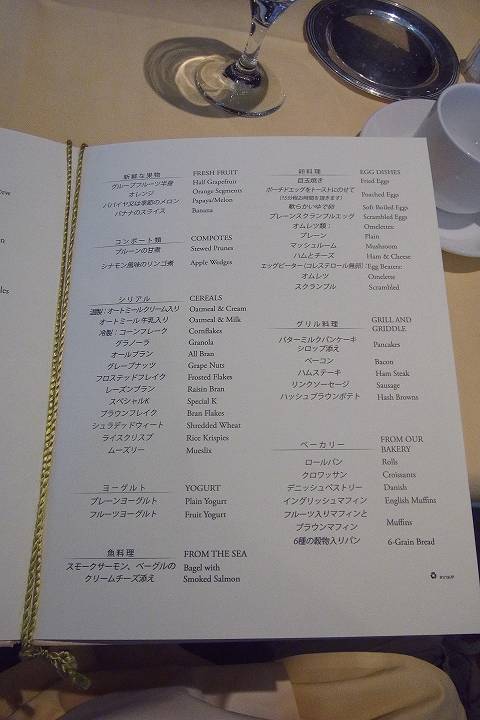 新鮮な果物 FRESH FRUIT
グループフルーツ半産 Half Grapefruit
オレンジ Orange Segments
パパイヤ又は季節のメロン Papaya/Melon
バナナのスライス Banana
コンポート類 COMPOTES
プルーンの甘煮 Stewed Prunes
シナモン風味のリンゴ煮 Apple Wedges
シリアル CEREALS
温製：オートミールクリーム入り Oatmeal & Cream
オートミール 牛乳入り Oatmeal & Milk
冷製：コーンフレーク Cornflakes
グラノーラ Granola
オールブラン All Bran
グレープナッツ Grape Nuts
フロステッドフレイク Frosted Flakes
レーズンブラン Raisin Bran
スペシャルK Special K
ブラウンフレイク Bran Flakes
シュラデッドウィート Shredded Wheat
ライスクリスプ Rice Krispies
ムーズリー Mueslix
ヨーグルト YOGURT
プレーンヨーグルト Plain Yogurt
フルーツヨーグルト Fruit Yogurt
魚料理 FROM THE SEA
スモークサーモン、ベーグルの Bagel with
クリームチーズ添え Smoked Salmon
卵料理 EGG DISHES
目玉焼き Fried Eggs
ポーチドエッグをトーストにのせて Poached Eggs
(15分程お時間を頂きます)
軟らかいゆで卵 Soft Boiled Eggs
プレーンスクランブルエッグ Scrambled Eggs
オムレツ類： Omelettes:
プレーン Plain
マッシュルーム Mushroom
ハムとチーズ Ham & Cheese
エッグビーター(コレステロール無卵)： Egg Beaters:
オムレツ Omelette
スクランブル Scrambled
グリル料理 GRILL AND
GRIDDLE
バターミルクパンケーキ Pancakes
シロップ添え
ベーコン Bacon
ハムステーキ Ham Steak
リンクソーセージ Sausage
ハッシュブラウンポテト Hash Browns
ベーカリー FROM OUR
BAKERY
ロールパン Rolls
クロワッサン Croissants
デニッシュペストリー Danish
イングリッシュマフィン English Muffins
フルーツ入りマフィンと Muffins
ブラウンマフィン
6種の穀物入りパン 6-Grain Bread